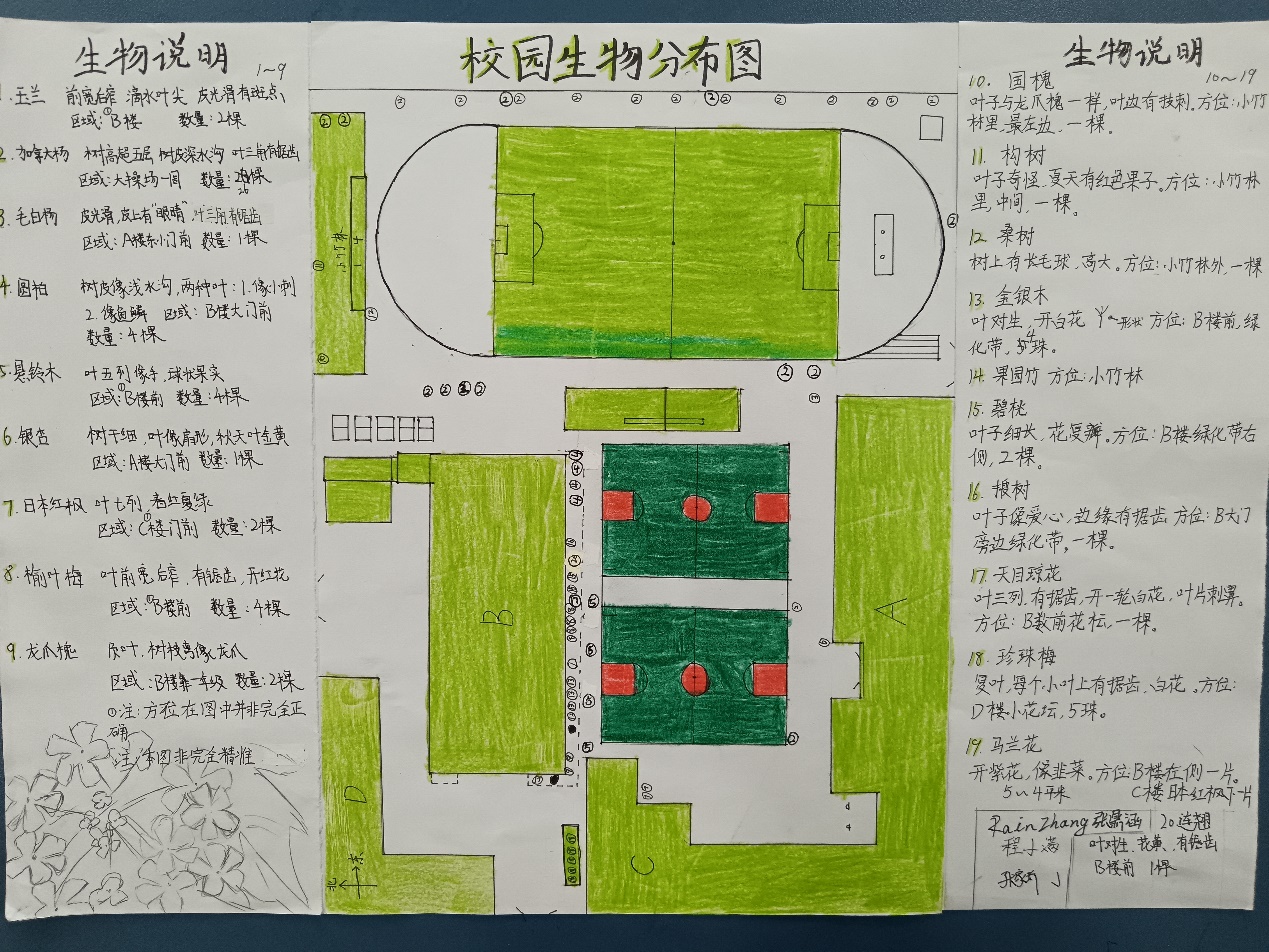 校园生物分布图
生物说明 1~9
1.玉兰 前宽后窄 滴水叶尖 皮光滑有斑点
区域:①B楼 数量:2棵
2.加拿大杨 树高超五层 树皮深水沟 叶三角有锯齿
区域:大操场一周 数量:26棵
3.毛白杨 皮光滑,皮上有"眼睛",叶三角有锯齿
区域:A楼东小门前 数量:1棵
4.圆柏 树皮像浅水沟,两种叶:1.像小刺
2.像鱼鳞 区域:B楼大门前
数量:4棵
5.悬铃木 叶五列像手,球状果实
区域:①B楼前 数量:4棵
6.银杏 树干细,叶像扇形,秋天叶金黄
区域:A楼大门前 数量:1棵
7.日本红枫 叶七列,春红夏绿
区域:①C楼门前 数量:2棵
8.榆叶梅 叶前宽后窄,有锯齿,开红花
区域:①B楼前 数量:4棵
9.龙爪槐 复叶,树枝像龙爪
区域:B楼靠一年级 数量:2棵
①注:方位在图中并非完全正
确
注:本图非完全精准
小竹林
A
B
C
D
北
东
生物说明
10~19
10.国槐
叶子与龙爪槐一样,叶边有技刺.方位:小竹
林里,最左边,一棵。
11.构树
叶子奇怪,夏天有红色果子.方位:小竹林
里,中间,一棵。
12.桑树
树上有长毛球,高大.方位:小竹林外,一棵
13.金银木
叶对生,开白花 形状 方位:B楼前,绿
化带,4珠。
14.果园竹 方位:小竹林
15.碧桃
叶子细长,花复瓣.方位:B楼绿化带右
侧,2棵。
16.椴树
叶子像爱心,边缘有据齿 方位:B大门
旁边绿化带,一棵。
17.天目琼花
叶三列,有据齿,开一轮白花,叶片刺鼻。
方位:B数前花坛,一棵。
18.珍珠梅
复叶,每个小叶上有据齿,白花.方位:
D楼小花坛,5珠。
19.马兰花
开紫花,像韭菜.方位:B楼左侧一片。
5~4平米 C楼日本红枫下一片
RainZhang 张
程子
20连翘
叶对生,花黄,有锯齿
B楼前 1棵